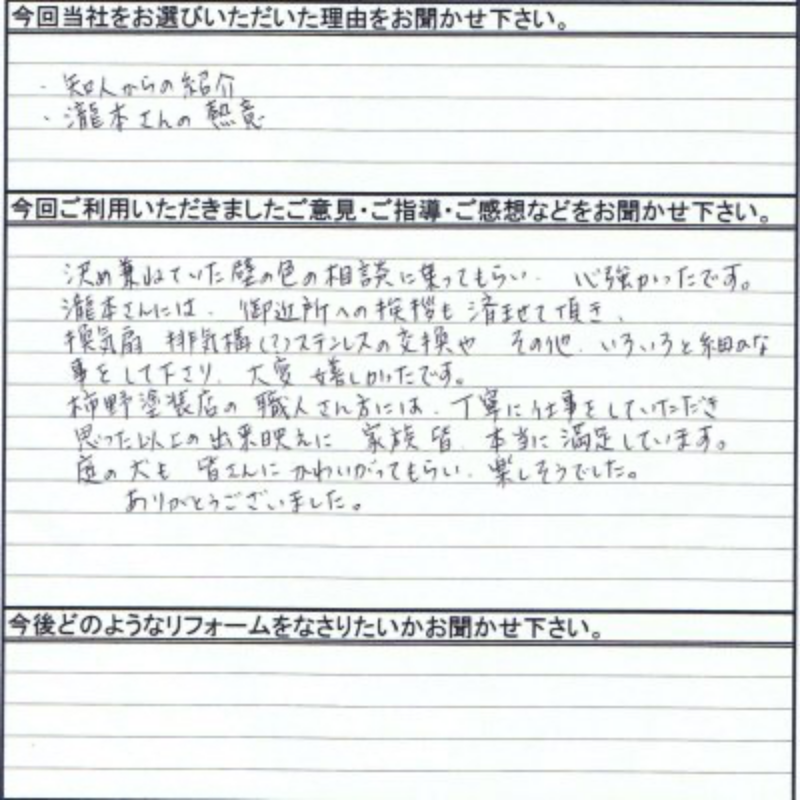 今回当社をお選びいただいた理由をお聞かせ下さい。
・知人からの紹介
・瀧本さんの熱意
今回ご利用いただきましたご意見・ご指導・ご感想などをお聞かせ下さい。
決め兼ねていた壁の色の相談に乗ってもらい、心強かったです。
瀧本さんには、御近所への挨拶も済ませて頂き、
換気扇 排気構(?)ステンレスの交換や その他、いろいろと細かな
事をして下さり、大変嬉しかったです。
柿野塗装店の職人さん方には、丁寧に仕事をしていただき
思った以上の出来映えに 家族皆、本当に満足しています。
庭の犬も 皆さんにかわいがってもらい、楽しそうでした。
ありがとうございました。
今後どのようなリフォームをなさりたいかお聞かせ下さい。